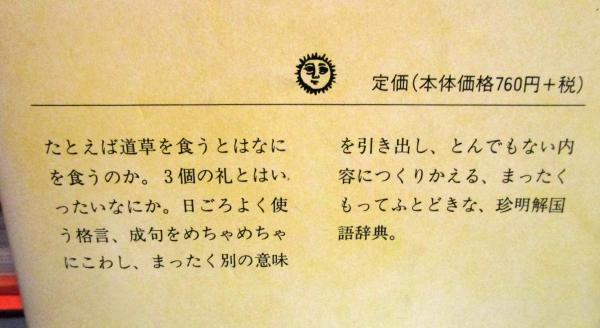 定価(本体価格760円+税)
たとえば道草を食うとはなに
を食うのか。3個の礼とはい
ったいなにか。日ごろよく使
う格言、成句をめちゃめちゃ
にこわし、まったく別の意味
を引き出し、とんでもない内
容につくりかえる、まったく
もってふとどきな、珍明解国
語辞典。